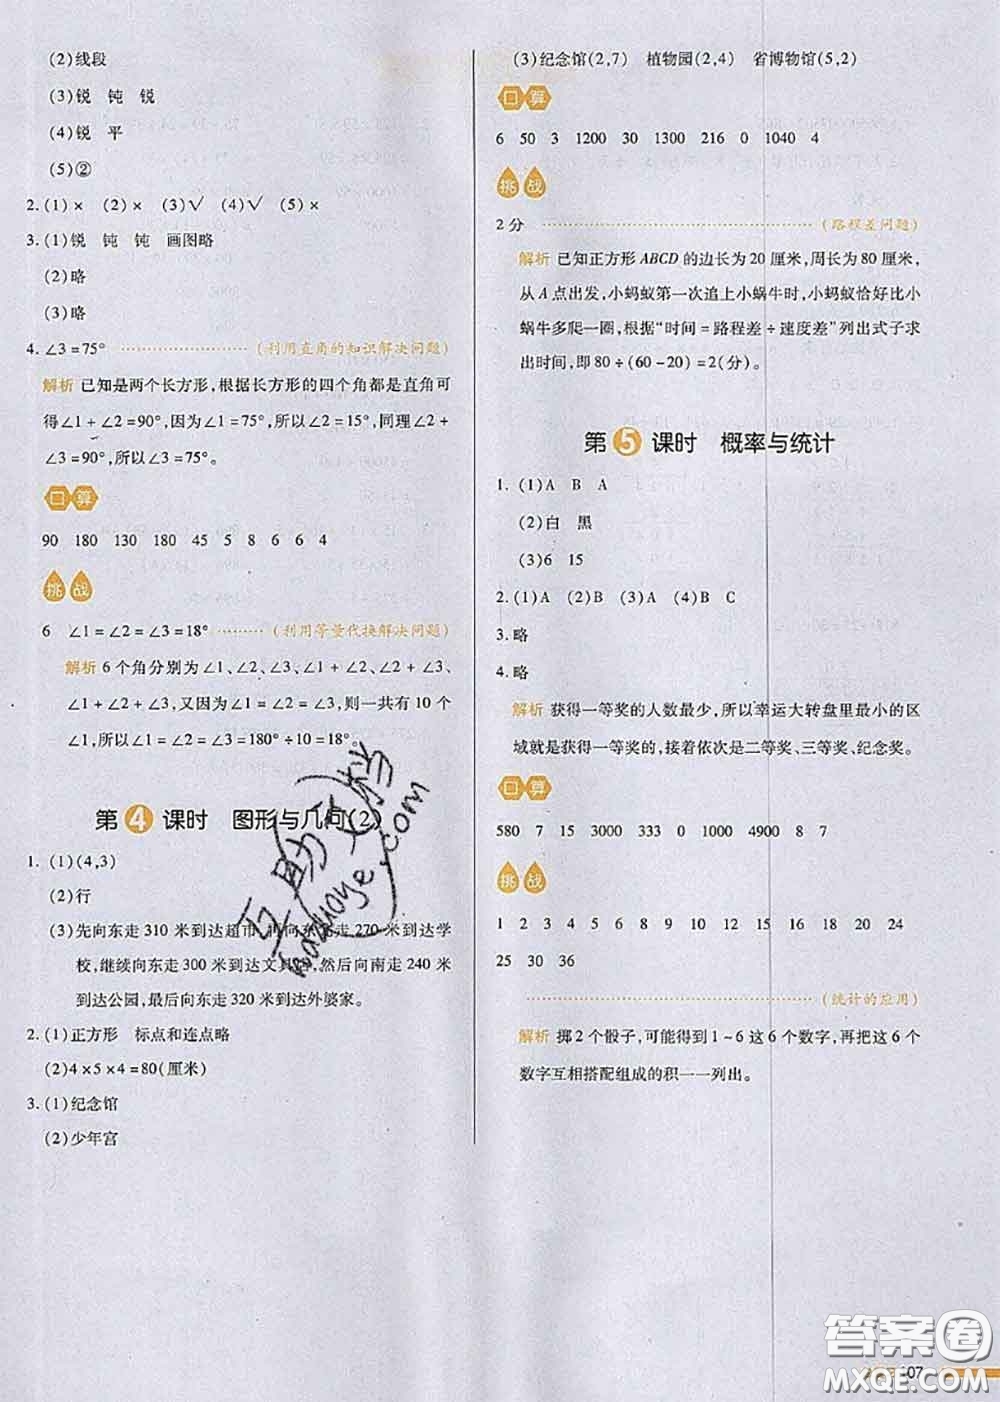 (2)线段
(3)锐 钝 锐
(4)锐 平
(5)②
2.(1)× (2)× (3)√ (4)√ (5)×
3.(1)锐 钝 钝 画图略
(2)略
(3)略
4.∠3=75° (利用直角的知识解决问题)
解析 已知是两个长方形,根据长方形的四个角都是直角可
得∠1+∠2=90°,因为∠1=75°,所以∠2=15°,同理∠2+
∠3=90°,所以∠3=75°。
口算
90 180 130 180 45 5 8 6 6 4
挑战
6 ∠1=∠2=∠3=18° (利用等量代换解决问题)
解析 6个角分别为∠1、∠2、∠3、∠1+∠2、∠2+∠3、
∠1+∠2+∠3,又因为∠1=∠2=∠3,则一共有10个
∠1,所以∠1=∠2=∠3=180°÷10=18°。
第4课时 图形与几何(2)
1.(1)(4,3)
(2)行
(3)先向东走310米到达超市,再向东走270米到达学
校,继续向东走300米到达文具店,然后向南走240米
到达公园,最后向东走320米到达外婆家。
2.(1)正方形 标点和连点略
(2)4×5×4=80(厘米)
3.(1)纪念馆
(2)少年宫
(3)纪念馆(2,7) 植物园(2,4) 省博物馆(5,2)
口算
6 50 3 1200 30 1300 216 0 1040 4
挑战
2分 (路程差问题)
解析 已知正方形ABCD的边长为20厘米,周长为80厘米,
从A点出发,小蚂蚁第一次追上小蜗牛时,小蚂蚁恰好比小
蜗牛多爬一圈,根据“时间=路程差÷速度差”列出式子求
出时间,即80÷(60-20)=2(分)。
第5课时 概率与统计
1.(1)A B A
(2)白 黑
(3)6 15
2.(1)A (2)B (3)A (4)B C
3.略
4.略
解析 获得一等奖的人数最少,所以幸运大转盘里最小的区
域就是获得一等奖的,接着依次是二等奖、三等奖、纪念奖。
口算
580 7 15 3000 333 0 1000 4900 8 7
挑战
1 2 3 4 5 6 8 9 10 12 15 16 18 20 24
25 30 36
(统计的应用)
解析 掷2个骰子,可能得到1~6这6个数字,再把这6个
数字互相搭配组成的积一一列出。
互助文档
huzhuoye.com
答案圈
MXQE.COM
107